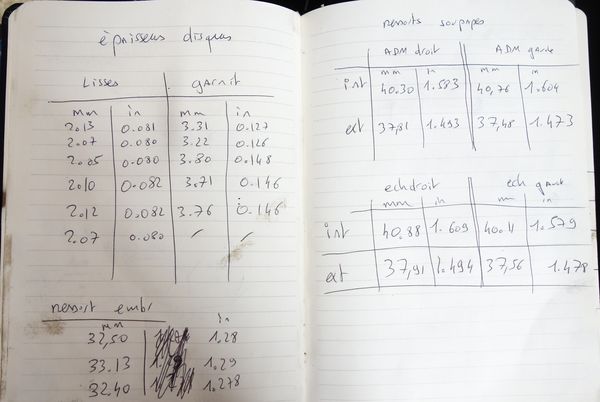 épaisseur disques
Lisses garnit
mm in mm in
2.13 0.081 3.31 0.127
2.07 0.080 3.22 0.126
2.05 0.080 3.80 0.148
2.10 0.082 3.71 0.146
2.12 0.082 3.76 0.146
2.07 0.080 / /
ressort embr
mm in
32,50 1.28
33.13 1.29
32.40 1.278
ressorts soupapes
ADM droit ADM gauche
mm in mm in
int 40.30 1.583 40,76 1.604
ext 37,81 1.493 37,48 1.473
ech droit ech gauche
mm in mm in
int 40.88 1.609 40.11 1.579
ext 37,91 1.494 37,56 1.478